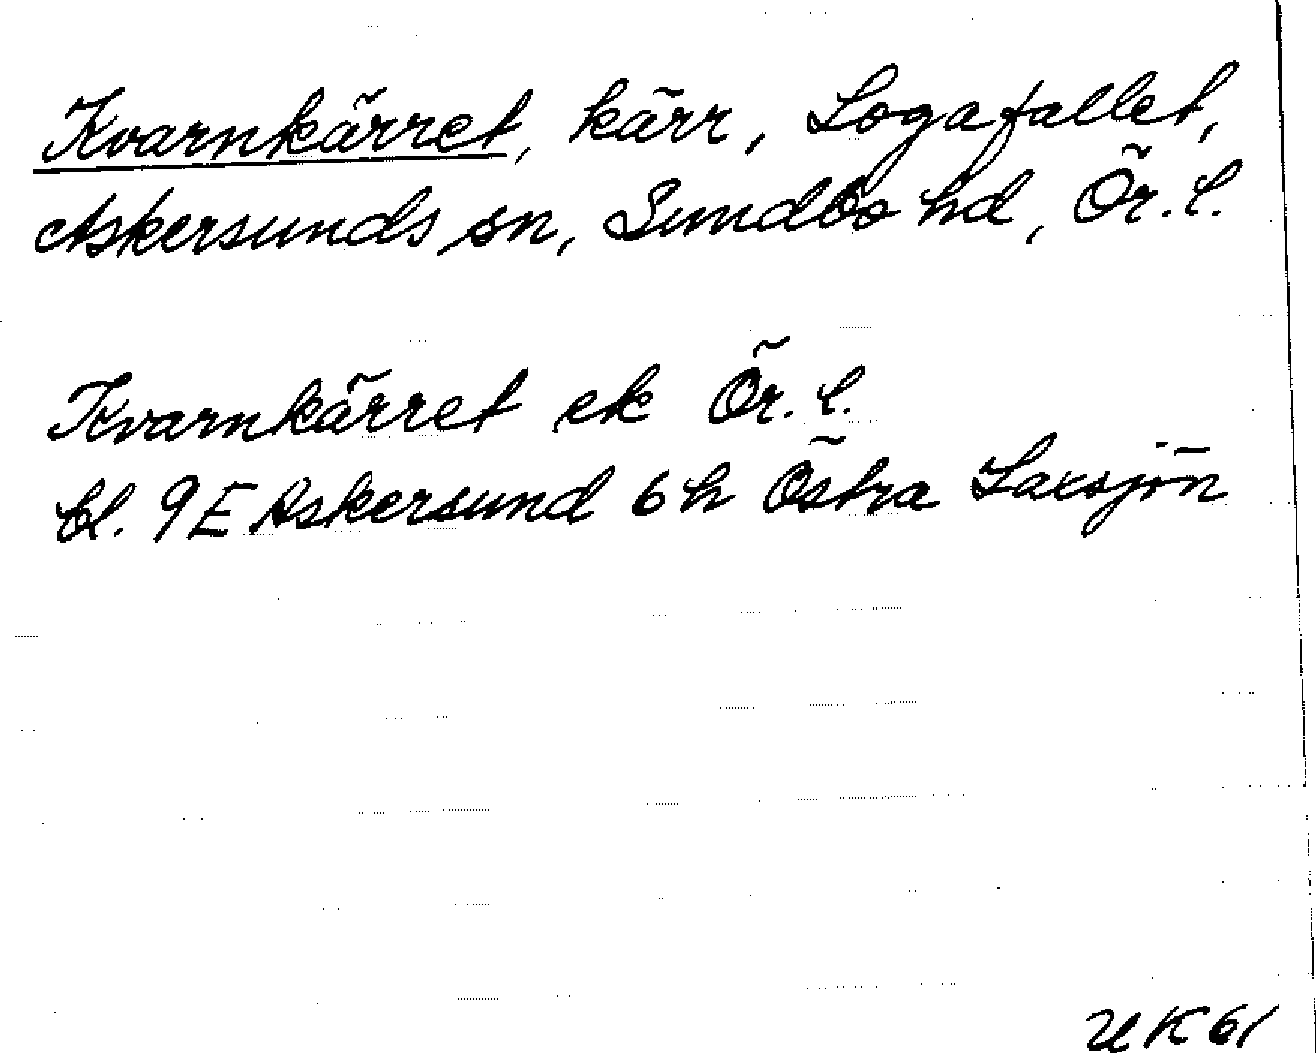 Kvarnkärret, kärr, Logafallet,
Askersunds sn, Sundbo hd, Ör. l.
Kvarnkärret ek Ör. l.
bl. 9E Askersund 6h Östra Laxsjön
UK61